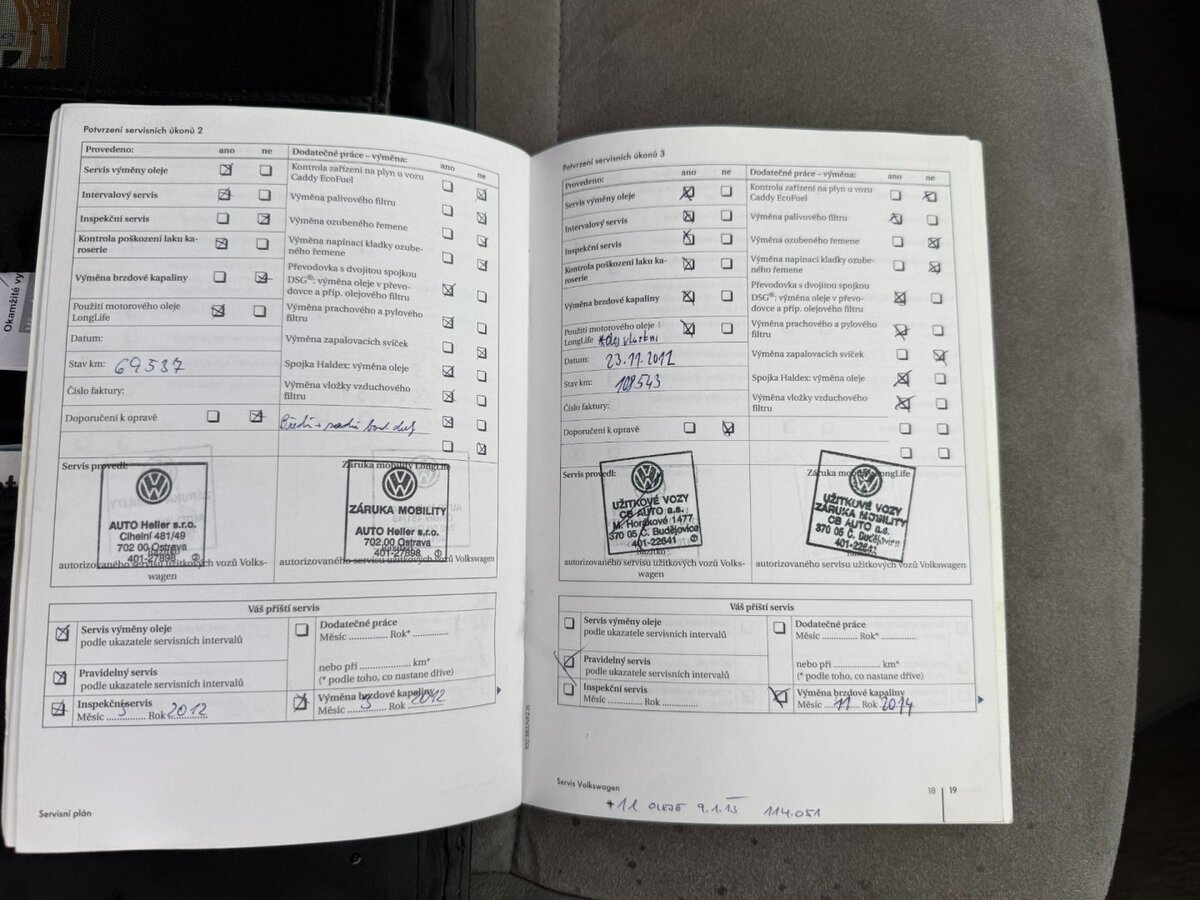 Okamžité vy
Potvrzení servisních úkonů 2
Provedeno: ano ne
Servis výměny oleje
Intervalový servis
Inspekční servis
Kontrola poškození laku ka-
roserie
Výměna brzdové kapaliny
Použití motorového oleje
LongLife
Datum:
Stav km: 69537
Číslo faktury:
Doporučení k opravě
Dodatečné práce – výměna: ano ne
Kontrola zařízení na plyn u vozu
Caddy EcoFuel
Výměna palivového
filtru
Výměna ozubeného řemene
Výměna napínací kladky ozube-
ného řemene
Převodovka s dvojitou spojkou
DSG®: výměna oleje v převo-
dovce a příp. olejového filtru
Výměna prachového a pylového
filtru
Výměna zapalovacích svíček
Spojka Haldex: výměna oleje
Výměna vložky vzduchového
filtru
Servis provedl:
AUTO Heller s.r.o.
Cihelní 481/49
702 00 Ostrava
401-27898
autorizovaného servisu užitkových vozů Volks-
wagen
Záruka mobility LongLife
ZÁRUKA MOBILITY
AUTO Heller s.r.o.
702 00 Ostrava
401-27898
autorizovaného servisu užitkových vozů Volkswagen
Váš příští servis
Servis výměny oleje
podle ukazatele servisních intervalů
Pravidelný servis
podle ukazatele servisních intervalů
Inspekční servis
Měsíc 5 Rok 2012
Dodatečné práce
Měsíc .............. Rok* ..............
nebo při .................... km*
(* podle toho, co nastane dříve)
Výměna brzdové kapaliny
Měsíc 5 Rok 2012
Servisní plán
Potvrzení servisních úkonů 3
Provedeno: ano ne
Servis výměny oleje
Intervalový servis
Inspekční servis
Kontrola poškození laku ka-
roserie
Výměna brzdové kapaliny
Použití motorového oleje
LongLife *olej vlastní
Datum: 23.11.2012
Stav km: 108543
Číslo faktury:
Doporučení k opravě
Dodatečné práce – výměna: ano ne
Kontrola zařízení na plyn u vozu
Caddy EcoFuel
Výměna palivového filtru
Výměna ozubeného řemene
Výměna napínací kladky ozube-
ného řemene
Převodovka s dvojitou spojkou
DSG®: výměna oleje v převo-
dovce a příp. olejového filtru
Výměna prachového a pylového
filtru
Výměna zapalovacích svíček
Spojka Haldex: výměna oleje
Výměna vložky vzduchového
filtru
Servis provedl:
UŽITKOVÉ VOZY
CB AUTO a.s.
M. Horákové 1477
370 05 Č. Budějovice
401-22641
autorizovaného servisu užitkových vozů Volks-
wagen
Záruka mobility LongLife
UŽITKOVÉ VOZY
ZÁRUKA MOBILITY
CB AUTO a.s.
370 05 Č. Budějovice
401-22641
autorizovaného servisu užitkových vozů Volkswagen
Váš příští servis
Servis výměny oleje
podle ukazatele servisních intervalů
Pravidelný servis
podle ukazatele servisních intervalů
Inspekční servis
Měsíc .............. Rok ..............
Dodatečné práce
Měsíc .............. Rok* ..............
nebo při .................... km*
(* podle toho, co nastane dříve)
Výměna brzdové kapaliny
Měsíc 11 Rok 2014
Servis Volkswagen
18 19
*1L OLEJE 9.1.13 114.051